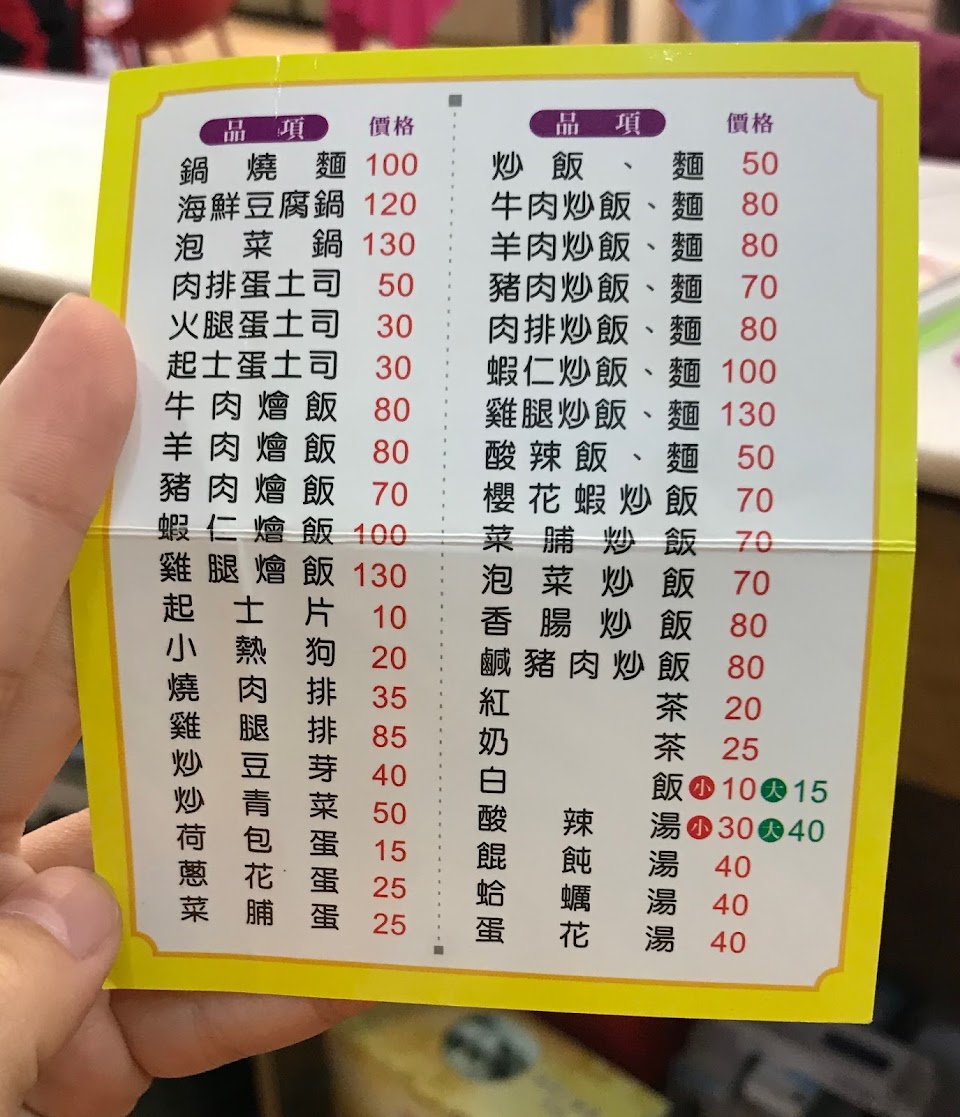 品項 價格
鍋燒麵 100
海鮮豆腐鍋 120
泡菜鍋 130
肉排蛋土司 50
火腿蛋土司 30
起士蛋土司 30
牛肉燴飯 80
羊肉燴飯 80
豬肉燴飯 70
蝦仁燴飯 100
雞腿燴飯 130
起士片 10
小熱狗 20
燒肉排 35
雞腿排 85
炒豆芽 40
炒青菜 50
荷包蛋 15
蔥花蛋 25
菜脯蛋 25
品項 價格
炒飯、麵 50
牛肉炒飯、麵 80
羊肉炒飯、麵 80
豬肉炒飯、麵 70
肉排炒飯、麵 80
蝦仁炒飯、麵 100
雞腿炒飯、麵 130
酸辣飯、麵 50
櫻花蝦炒飯 70
菜脯炒飯 70
泡菜炒飯 70
香腸炒飯 80
鹹豬肉炒飯 80
紅茶 20
奶茶 25
白飯 小10 大15
酸辣湯 小30 大40
餛飩湯 40
蛤蠣湯 40
蛋花湯 40